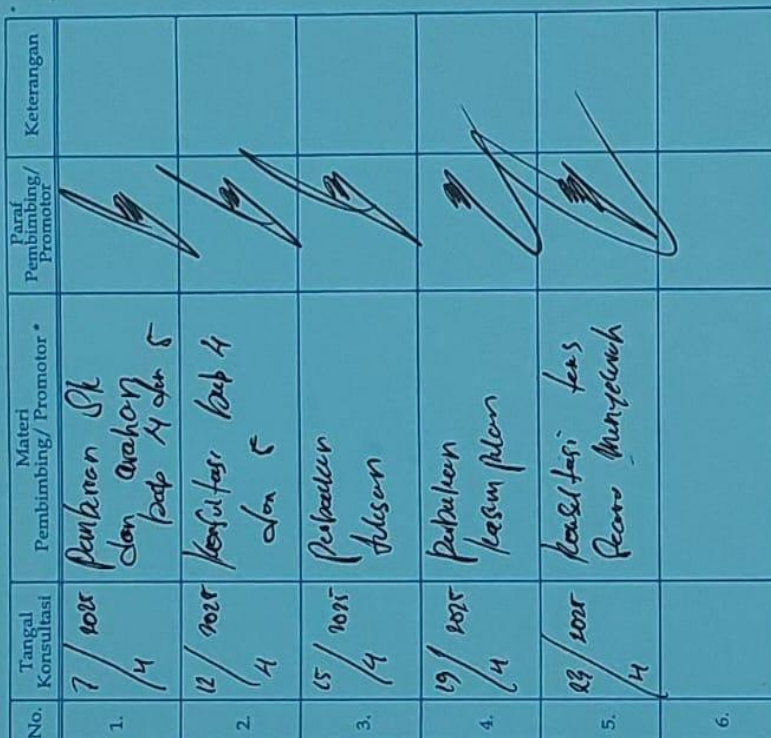 No.
Tangal
Konsultasi
Materi
Pembimbing/ Promotor *
Paraf
Pembimbing/
Promotor
Keterangan
1.
7/4 2025
Pemberian SK
dan arahan
bab 4 dan 5
2.
12/4 2025
Konsultasi bab 4
dan 5
3.
15/4 2025
Perbaikan
tulisan
4.
19/4 2025
Perbaikan
kesimpulan
5.
23/4 2025
Konsultasi tesis
secara menyeluruh
6.